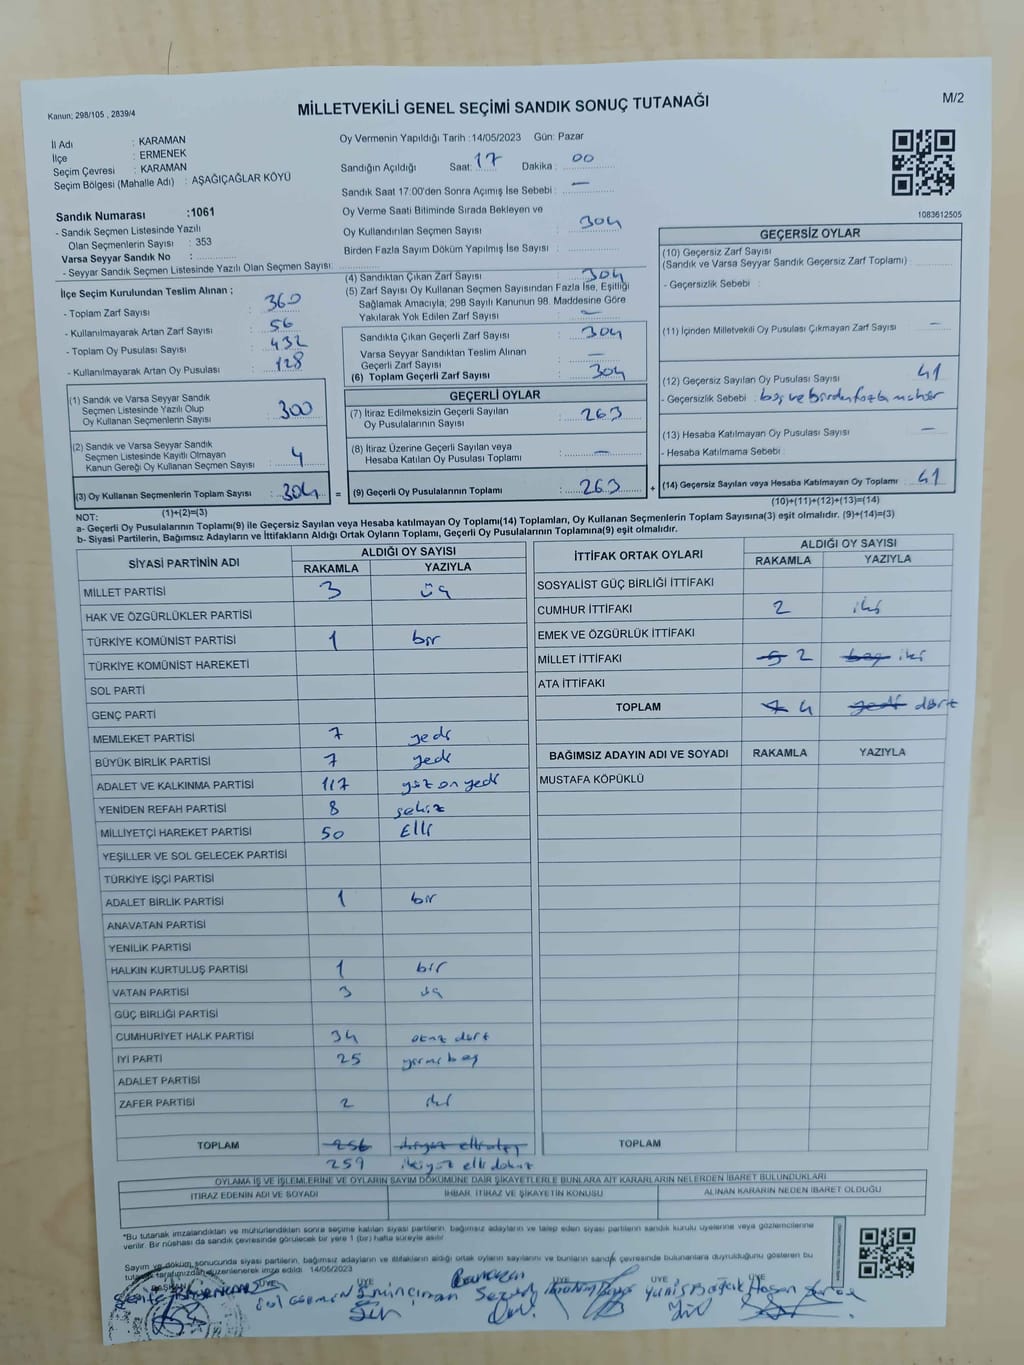 Kanun: 298/105 , 2839/4
MİLLETVEKİLİ GENEL SEÇİMİ SANDIK SONUÇ TUTANAĞI
M/2
İl Adı : KARAMAN
İlçe : ERMENEK
Seçim Çevresi : KARAMAN
Seçim Bölgesi (Mahalle Adı) : AŞAĞIÇAĞLAR KÖYÜ
Sandık Numarası :1061
- Sandık Seçmen Listesinde Yazılı
Olan Seçmenlerin Sayısı : 353
Varsa Seyyar Sandık No :
- Seyyar Sandık Seçmen Listesinde Yazılı Olan Seçmen Sayısı:
Oy Vermenin Yapıldığı Tarih :14/05/2023 Gün: Pazar
Sandığın Açıldığı Saat: 17 Dakika : 00
Sandık Saat 17:00'den Sonra Açımış İse Sebebi : —
Oy Verme Saati Bitiminde Sırada Bekleyen ve
Oy Kullandırılan Seçmen Sayısı : 304
Birden Fazla Sayım Döküm Yapılmış İse Sayısı :
1083612505
İlçe Seçim Kurulundan Teslim Alınan ;
- Toplam Zarf Sayısı : 360
- Kullanılmayarak Artan Zarf Sayısı : 56
- Toplam Oy Pusulası Sayısı : 432
- Kullanılmayarak Artan Oy Pusulası : 128
(1) Sandık ve Varsa Seyyar Sandık
Seçmen Listesinde Yazılı Olup
Oy Kullanan Seçmenlerin Sayısı : 300
(2) Sandık ve Varsa Seyyar Sandık
Seçmen Listesinde Kayıtlı Olmayan
Kanun Gereği Oy Kullanan Seçmen Sayısı : 4
(3) Oy Kullanan Seçmenlerin Toplam Sayısı : 304
(1)+(2)=(3)
(4) Sandıktan Çıkan Zarf Sayısı : 304
(5) Zarf Sayısı Oy Kullanan Seçmen Sayısından Fazla İse, Eşitliği
Sağlamak Amacıyla; 298 Sayılı Kanunun 98. Maddesine Göre
Yakılarak Yok Edilen Zarf Sayısı : —
Sandıkta Çıkan Geçerli Zarf Sayısı : 304
Varsa Seyyar Sandıktan Teslim Alınan
Geçerli Zarf Sayısı : —
(6) Toplam Geçerli Zarf Sayısı : 304
GEÇERLİ OYLAR
(7) İtiraz Edilmeksizin Geçerli Sayılan
Oy Pusulalarının Sayısı : 263
(8) İtiraz Üzerine Geçerli Sayılan veya
Hesaba Katılan Oy Pusulası Toplamı : —
= (9) Geçerli Oy Pusulalarının Toplamı : 263 +
GEÇERSİZ OYLAR
(10) Geçersiz Zarf Sayısı
(Sandık ve Varsa Seyyar Sandık Geçersiz Zarf Toplamı) :
- Geçersizlik Sebebi :
(11) İçinden Milletvekili Oy Pusulası Çıkmayan Zarf Sayısı : —
(12) Geçersiz Sayılan Oy Pusulası Sayısı : 41
- Geçersizlik Sebebi : boş ve birden fazla mühür
(13) Hesaba Katılmayan Oy Pusulası Sayısı : —
- Hesaba Katılmama Sebebi :
(14) Geçersiz Sayılan veya Hesaba Katılmayan Oy Toplamı : 41
(10)+(11)+(12)+(13)=(14)
NOT:
a- Geçerli Oy Pusulalarının Toplamı(9) ile Geçersiz Sayılan veya Hesaba katılmayan Oy Toplamı(14) Toplamları, Oy Kullanan Seçmenlerin Toplam Sayısına(3) eşit olmalıdır. (9)+(14)=(3)
b- Siyasi Partilerin, Bağımsız Adayların ve İttifakların Aldığı Ortak Oyların Toplamı, Geçerli Oy Pusulalarının Toplamına(9) eşit olmalıdır.
SİYASİ PARTİNİN ADI ALDIĞI OY SAYISI
RAKAMLA YAZIYLA
MİLLET PARTİSİ 3 üç
HAK VE ÖZGÜRLÜKLER PARTİSİ
TÜRKİYE KOMÜNİST PARTİSİ 1 bir
TÜRKİYE KOMÜNİST HAREKETİ
SOL PARTİ
GENÇ PARTİ
MEMLEKET PARTİSİ 7 yedi
BÜYÜK BİRLİK PARTİSİ 7 yedi
ADALET VE KALKINMA PARTİSİ 117 yüz on yedi
YENİDEN REFAH PARTİSİ 8 sekiz
MİLLİYETÇİ HAREKET PARTİSİ 50 Elli
YEŞİLLER VE SOL GELECEK PARTİSİ
TÜRKİYE İŞÇİ PARTİSİ
ADALET BİRLİK PARTİSİ 1 bir
ANAVATAN PARTİSİ
YENİLİK PARTİSİ
HALKIN KURTULUŞ PARTİSİ 1 bir
VATAN PARTİSİ 3 üç
GÜÇ BİRLİĞİ PARTİSİ
CUMHURİYET HALK PARTİSİ 34 otuz dört
İYİ PARTİ 25 yirmi beş
ADALET PARTİSİ
ZAFER PARTİSİ 2 iki
TOPLAM 256
259 ikiyüz elli dokuz
İTTİFAK ORTAK OYLARI ALDIĞI OY SAYISI
RAKAMLA YAZIYLA
SOSYALİST GÜÇ BİRLİĞİ İTTİFAKI
CUMHUR İTTİFAKI 2 iki
EMEK VE ÖZGÜRLÜK İTTİFAKI
MİLLET İTTİFAKI 5 2 beş iki
ATA İTTİFAKI
TOPLAM 7 4 yedi dört
BAĞIMSIZ ADAYIN ADI VE SOYADI RAKAMLA YAZIYLA
MUSTAFA KÖPÜKLÜ
TOPLAM
OYLAMA İŞ VE İŞLEMLERİNE VE OYLARIN SAYIM DÖKÜMÜNE DAİR ŞİKAYETLERLE BUNLARA AİT KARARLARIN NELERDEN İBARET BULUNDUKLARI
İTİRAZ EDENİN ADI VE SOYADI İHBAR, İTİRAZ VE ŞİKAYETİN KONUSU ALINAN KARARIN NEDEN İBARET OLDUĞU
*Bu tutanak imzalandıktan ve mühürlendikten sonra seçime katılan siyasi partilerin, bağımsız adayların ve talep eden siyasi partilerin sandık kurulu üyelerine veya gözlemcilerine
verilir. Bir nüshası da sandık çevresinde görülecek bir yere 1 (bir) hafta süreyle asılır.
Sayım ve döküm sonucunda siyasi partilerin, bağımsız adayların ve ittifakların aldığı ortak oyların sayılarını ve bunların sandık çevresinde bulunanlara duyrulduğunu gösteren bu
tutanak tarafımızdan düzenlenerek imza edildi. 14/05/2023
BAŞKAN ÜYE ÜYE ÜYE ÜYE ÜYE